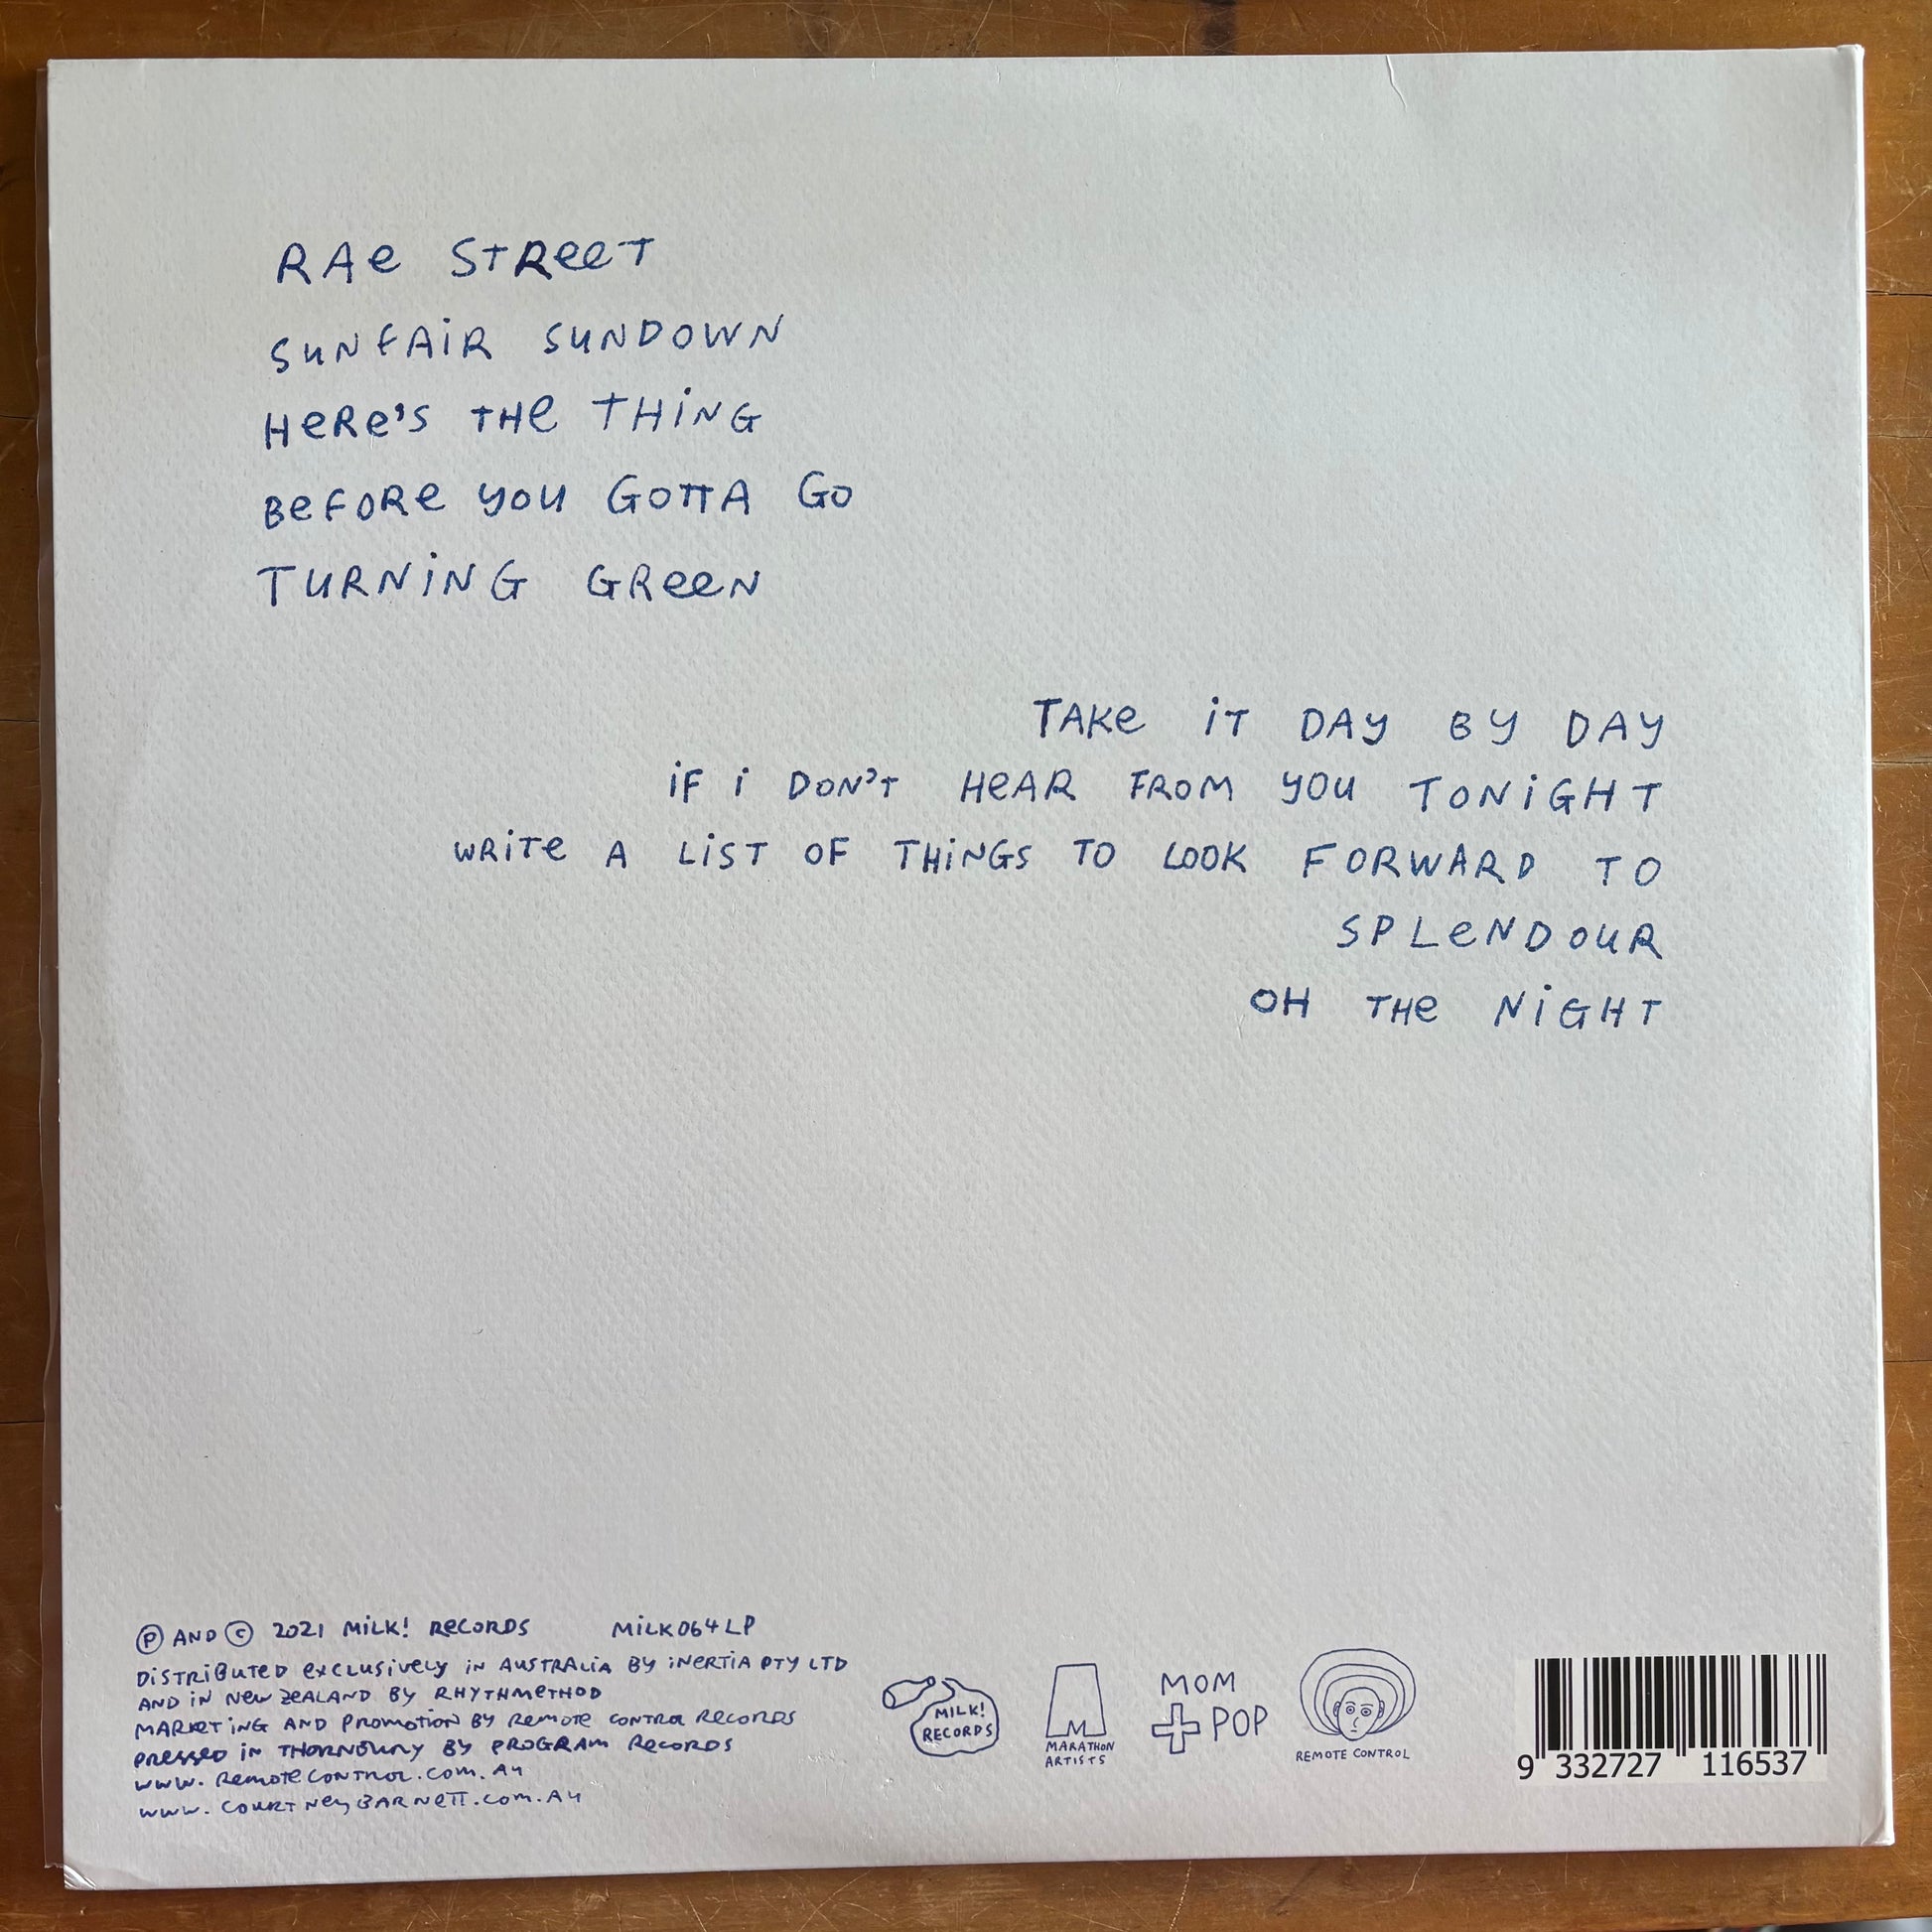 RAe STReeT
SuNFAiR SuNDOWN
HeRe'S THe THiNG
BeFORe you GOTTA GO
TuRNiNG GReeN
TAKe iT DAy By DAy
iF i DON'T HeAR FROM you TONiGHT
WRiTe A LiST OF THiNGS TO LOOK FORWARD TO
SPLeNDOuR
OH THe NiGHT
℗ AND © 2021 MiLK! ReCORDS MiLK064LP
DiSTRiBuTeD exCLuSiveLy iN AuSTRALiA By iNeRTiA PTy LTD
AND iN New ZeALAND By RHyTHMeTHOD
MARKeTiNG AND PROMOTiON By ReMOTe CONTROL ReCORDS
PReSSeD iN THORNBuRy By PROGRAM ReCORDS
www.ReMOTeCONTROL.COM.Au
www.COuRTNeyBARNeTT.COM.Au
MILK!
RECORDS
MARATHON
ARTISTS
MOM
+ POP
REMOTE CONTROL
9 332727 116537